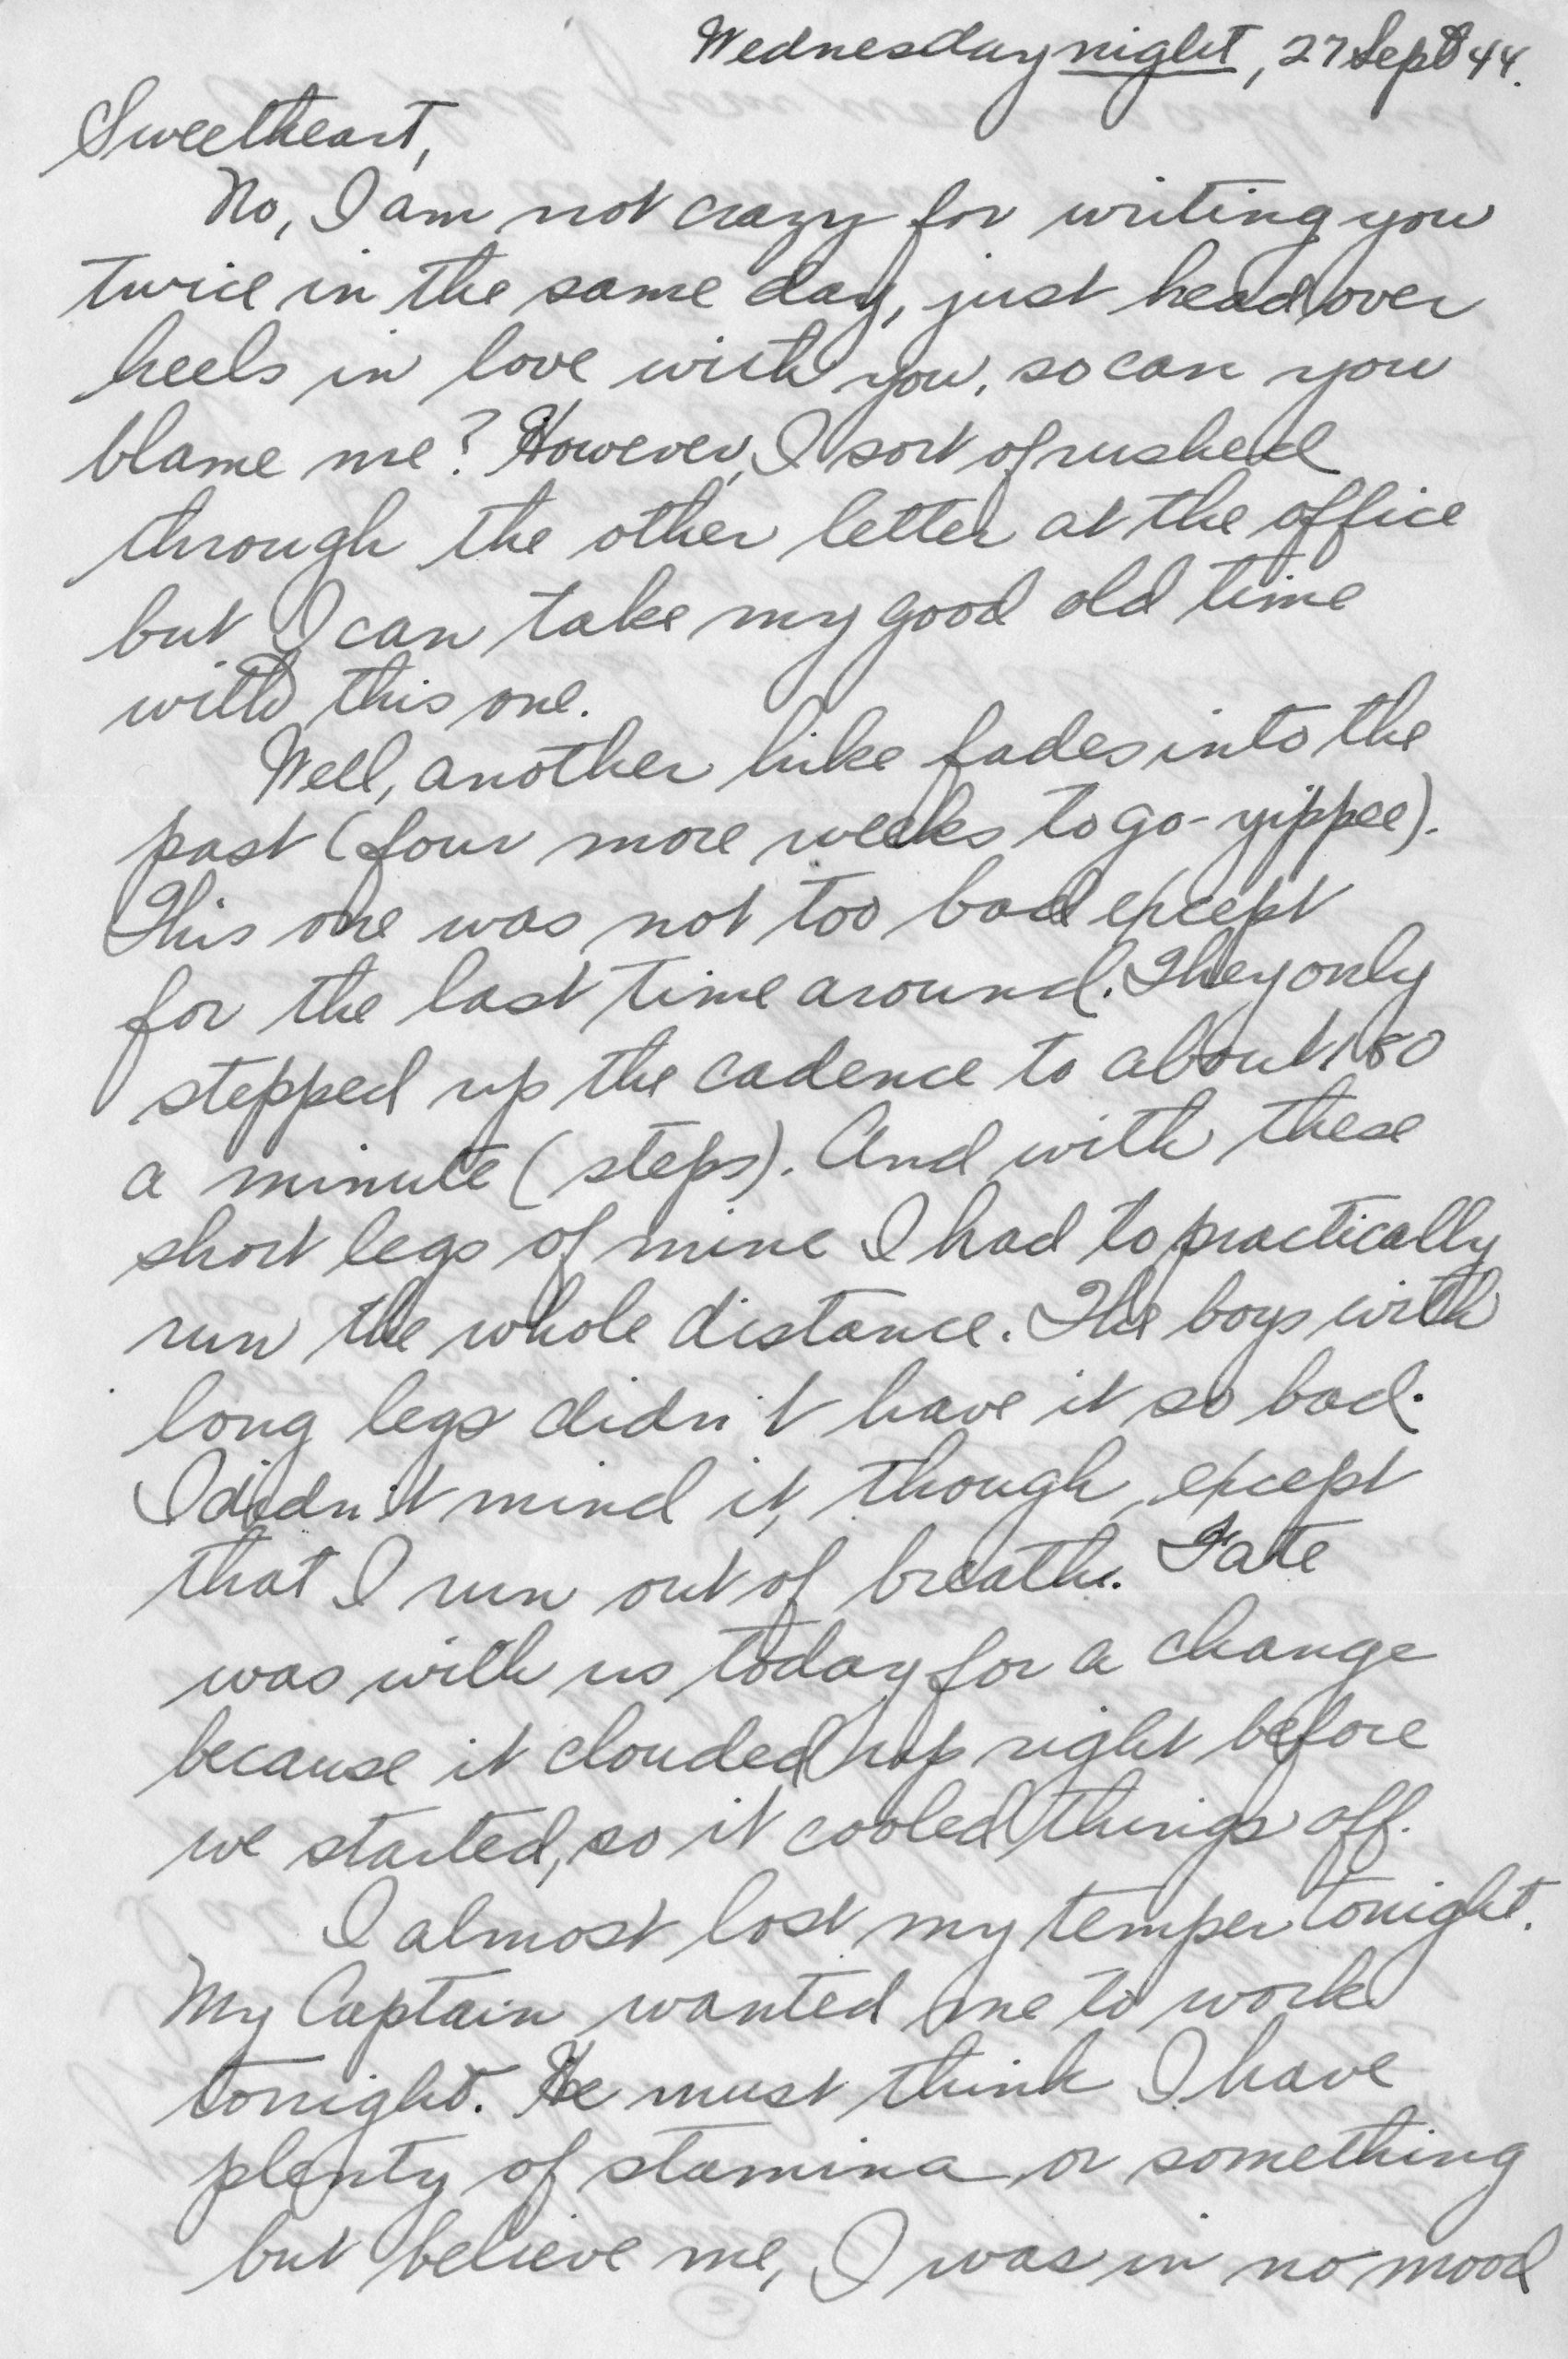 Wednesday night, 27 Sept 44.
Sweetheart,
No, I am not crazy for writing you
twice in the same day, just head over
heels in love with you, so can you
blame me? However, I sort of rushed
through the other letter at the office
but I can take my good old time
with this one.
Well, another hike fades into the
past (four more weeks to go - yippee).
This one was not too bad except
for the last time around. They only
stepped up the cadence to about 180
a minute (steps). And with these
short legs of mine I had to practically
run the whole distance. The boys with
long legs didn't have it so bad.
I didn't mind it, though, except
that I run out of breath. Fate
was with us today for a change
because it clouded up right before
we started, so it cooled things off.
I almost lost my temper tonight.
My Captain wanted me to work
tonight. He must think I have
plenty of stamina or something
but believe me, I was in no mood